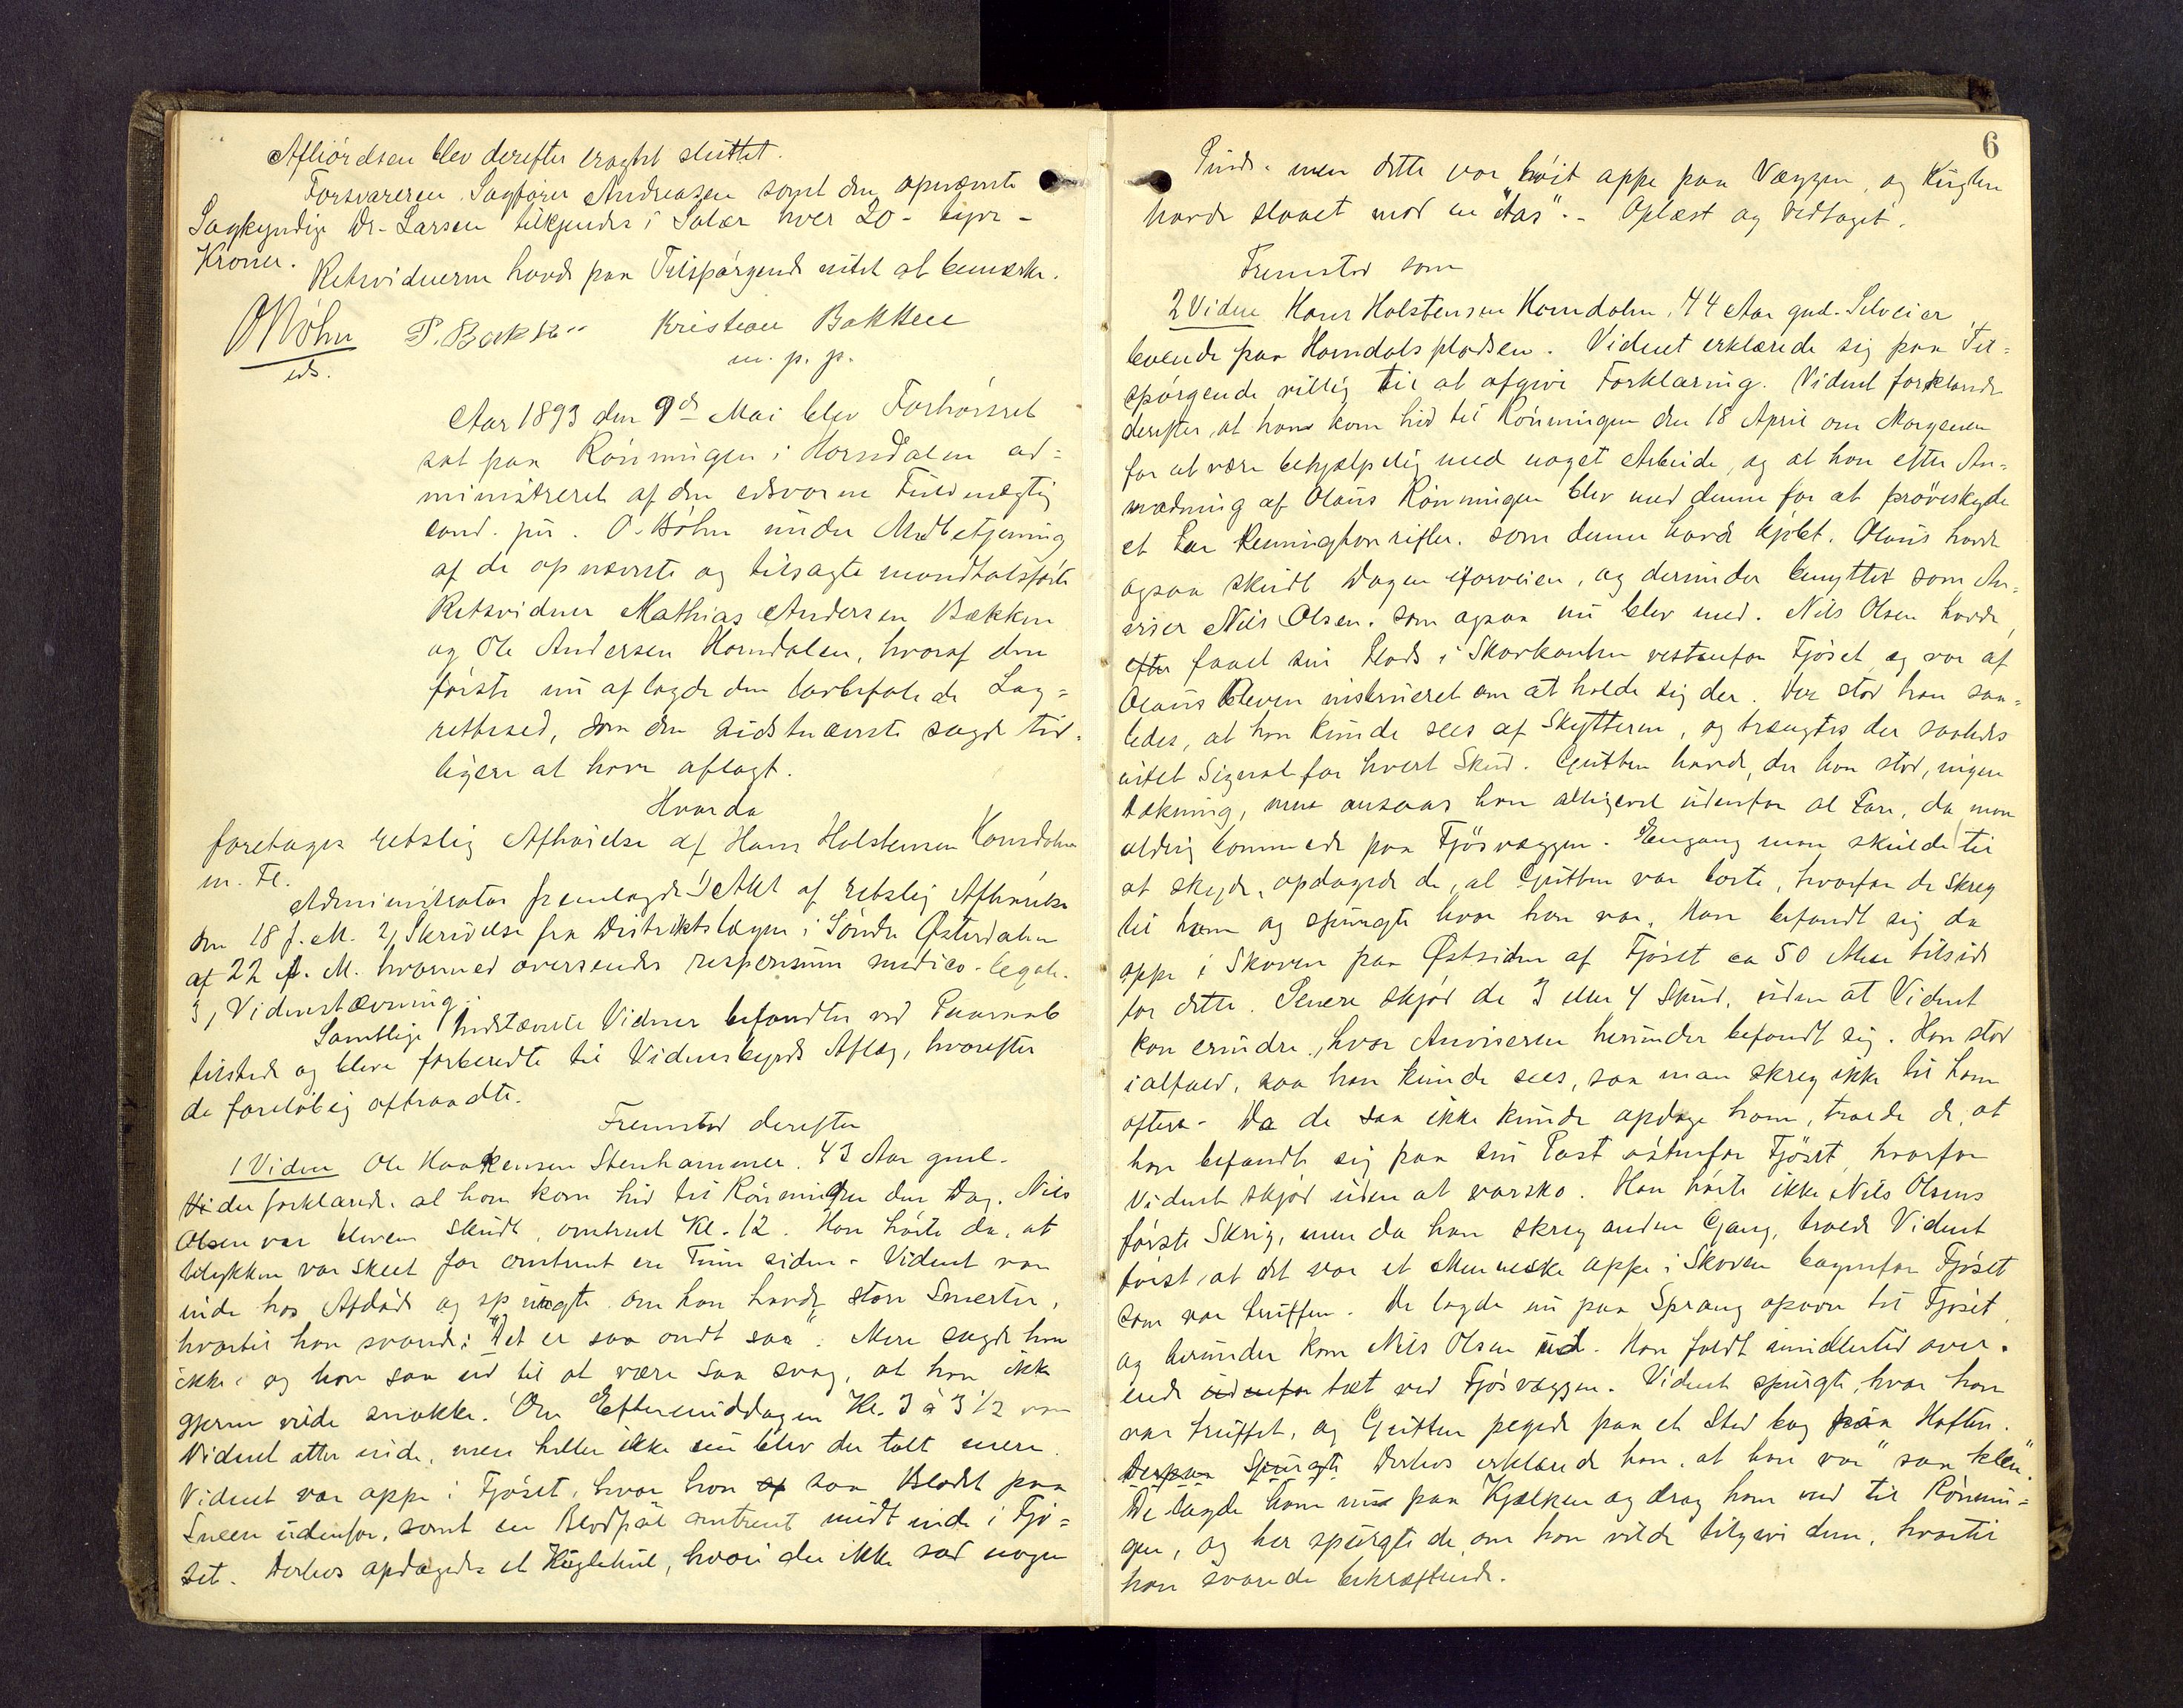 Afhørelsen blev derefter eragtet sluttet.
Forsvareren Sagfører Andreasen samt den opnævnte
Sagkyndige Dr. Larsen tilkjendes i Salær hver 20 - tyve -
Kroner.
Retsvidnerne havde paa Tilspørgende intet at bemærke.
O Bøhn P. Bakke Kristian Bakken
eds. m. p. p.
Aar 1893 den 9de Mai blev Forhørsret
sat paa Rønningen i Horndalen ad=
ministreret af den edsvorne Fuldmægtig
cand. jur. O. Bøhn under Medbetjening
af de opnævnte og tilsagte mandtalsførte
Retsvidner Mathias Andersen Bækken
og Ole Andersen Horndalen, hvoraf den
første nu aflagde den lovbefalede Lag=
rettesed, som den sidstnævnte sagde tid=
ligere at have aflagt.
Hvorda
foretages retslig Afhørelse af Hans Halstensen Horndalen
m. Fl.
Administrator fremlagde 1, Akt af retslig Afhørelse
den 18 f. M. 2, Skrivelse fra Distriktslægen i Søndre Østerdalen
af 22 f. M. hvormed oversendes responsum medico-legale.
3, Vidnestævning.
Samtlige indstævnte Vidner befandtes ved Paaraab
tilstede og bleve forberedte til Vidnesbyrds Aflæg, hvorefter
de foreløbig aftraadte.
Fremstod derefter
1 Vidne Ole Haakensen Stenhammer. 43 Aar gml.
Vi der forklarede. at han kom hid til Rønningen den Dag. Nils
Olsen var bleven skudt, omtrent Kl. 12. Han hørte da, at
Ulykken var skeet for omtrent en Time siden. Vidnet var
inde hos Afdøde og spurgte om han havde store Smerter,
hvortil han svarede: "Det er saa ondt saa". Mere sagde han
ikke, og han saa ud til at være saa svag, at han ikke
gjerne vilde snakke. Om Eftermiddagen Kl. 3 à 3 1/2 var
Vidnet atter inde, men heller ikke nu blev der talt mere.
Vidnet var oppe i Fjøset, hvor han saa Blodet paa
Sneen udenfor, samt en Blodpøl omtrent midt inde i Fjø=
set. Derhos opdagedes et Kuglehul, hvori der ikke sad nogen
6
Pinde. men dette var høit oppe paa Væggen, og Kuglen
havde slaaet mod en "Aas". - Oplæst og vedtaget.
Fremstod som
2 Vidne Hans Halstensen Horndalen, 44 Aar gml. Selveier,
boende paa Horndalspladsen. Vidnet erklærede sig paa Til=
spørgende villig til at afgive Forklaring. Vidnet forklarede
derefter, at han kom hid til Rønningen den 18 April om Morgenen
for at være behjælpelig med noget Arbeide, og at han efter An=
modning af Olaus Rønningen blev med denne for at prøveskyde
et Par Remingtonrifler. som denne havde kjøbt. Olaus havde
ogsaa skudt Dagen iforveien, og derunder benyttet som An=
viser Nils Olsen. som ogsaa nu blev med. Nils Olsen havde,
efter faaet sin Plads i Skovkanten vestenfor Fjøset og var af
Olaus bleven instrueret om at holde sig der. Der stod han saa=
ledes, at han kunde sees af Skytteren, og trængtes der saaledes
intet Signal for hvert Skud. Gutten havde, der han stod, ingen
Dækning, men ansaaes han alligevel udenfor al Fare, da man
aldrig bommede paa Fjøsvæggen. Engang man skulde til
at skyde, opdagede de, at Gutten var borte, hvorfor de skreg
til ham og spurgte hvor han var. Han befandt sig da
oppe i Skoven paa Østsiden af Fjøset ca 50 Alen tilside
for dette. Senere skjød de 3 eller 4 Skud, uden at Vidnet
kan erindre, hvor Anviseren herunder befandt sig. Han stod
ialfald, saa han kunde sees, saa man skreg ikke til ham
oftere. Da de saa ikke kunde opdage ham, troede de, at
han befandt sig paa sin Post østenfor Fjøset, hvorfor
Vidnet skjød uden at varsko. Han hørte ikke Nils Olsens
første Skrig, men da han skreg anden Gang, troede Vidnet
først, at det var et Menneske oppe i Skoven bagenfor Fjøset
som var truffen. De lagde nu paa Sprang opover til Fjøset,
og herunder kom Nils Olsen ud. Han faldt imidlertid over=
ende udenfor tæt ved Fjøsvæggen. Vidnet spurgte, hvor han
var truffet, og Gutten pegede paa et Sted bag paa Hoften.
Derpaa Spurgte Derhos erklærede han, at han var "saa klein".
De lagde ham nu paa Kjælken og drog ham ned til Rønnin=
gen, og her spurgte de om han vilde tilgive dem, hvortil
han svarede bekræftende.